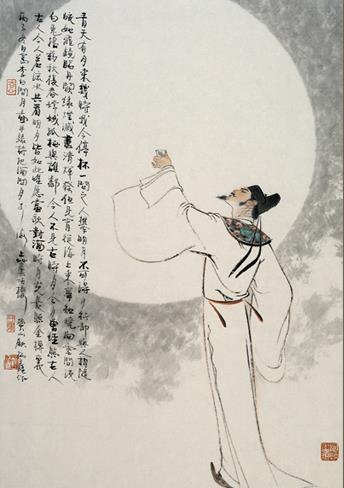 青天有月來幾時我今停杯一問之人攀明月不可得月行却與人相隨
皎如飛鏡臨丹闕綠煙滅盡清輝發但見宵從海上來寧知曉向雲間沒
白兔搗藥秋復春嫦娥孤棲與誰鄰今人不見古時月今月曾經照古人
古人今人若流水共看明月皆如此唯願當歌對酒時月光長照金樽裏
李白問月